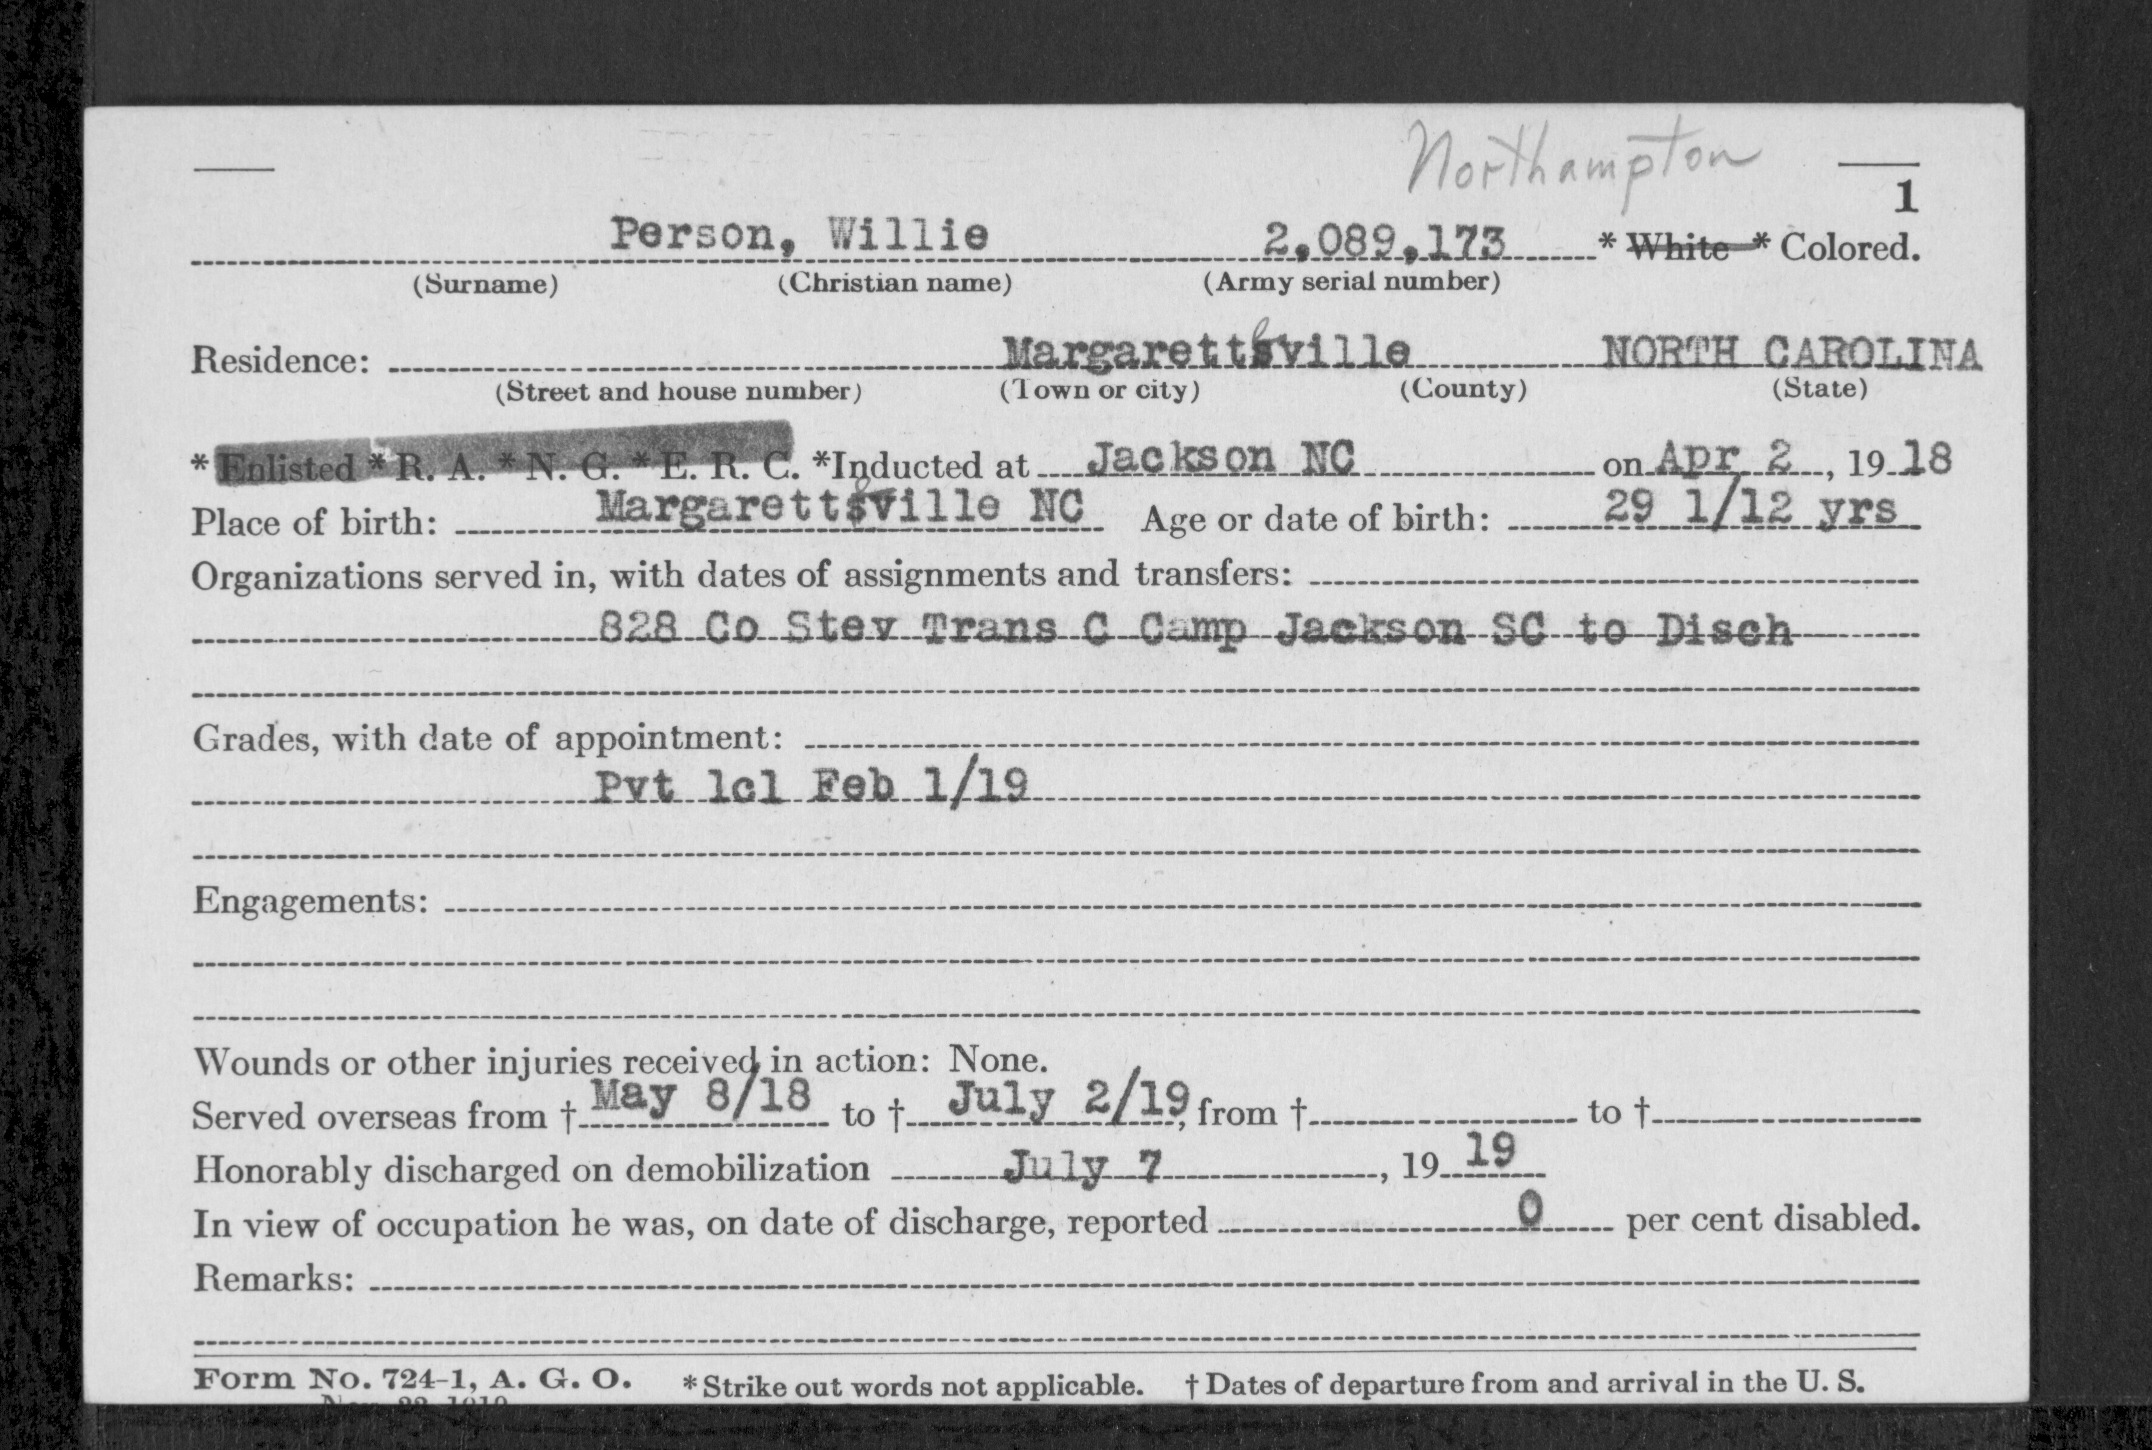 Northampton
1
Person, Willie 2,089,173 * White * Colored.
(Surname) (Christian name) (Army serial number)
Residence: Margarettsville NORTH CAROLINA
(Street and house number) (Town or city) (County) (State)
* Enlisted * R. A. * N. G. * E. R. C. *Inducted at Jackson NC on Apr 2, 19 18
Place of birth: Margarettsville NC Age or date of birth: 29 1/12 yrs
Organizations served in, with dates of assignments and transfers:
828 Co Stev Trans C Camp Jackson SC to Disch
Grades, with date of appointment:
Pvt 1cl Feb 1/19
Engagements:
Wounds or other injuries received in action: None.
Served overseas from † May 8/18 to † July 2/19, from † to †
Honorably discharged on demobilization July 7, 19 19
In view of occupation he was, on date of discharge, reported 0 per cent disabled.
Remarks:
Form No. 724-1, A. G. O. * Strike out words not applicable. † Dates of departure from and arrival in the U. S.